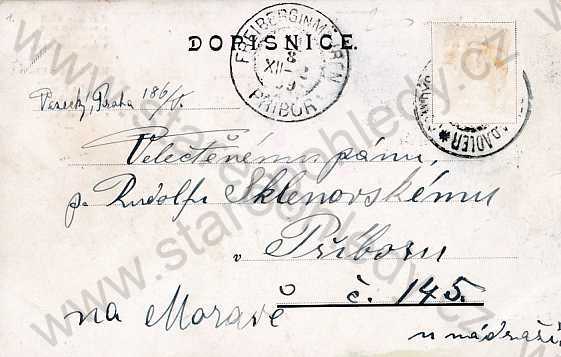 1.
DOPISNICE.
FREIBERG IN MÄHREN
8
XII
99
PŘÍBOR
ADLER
Pesecký, Praha 186/V.
Velectěnému pánu,
p. Rudolfu Sklenovskému
v Příboru
č. 145.
na Moravě
u nádraží
www.staropohledy.cz